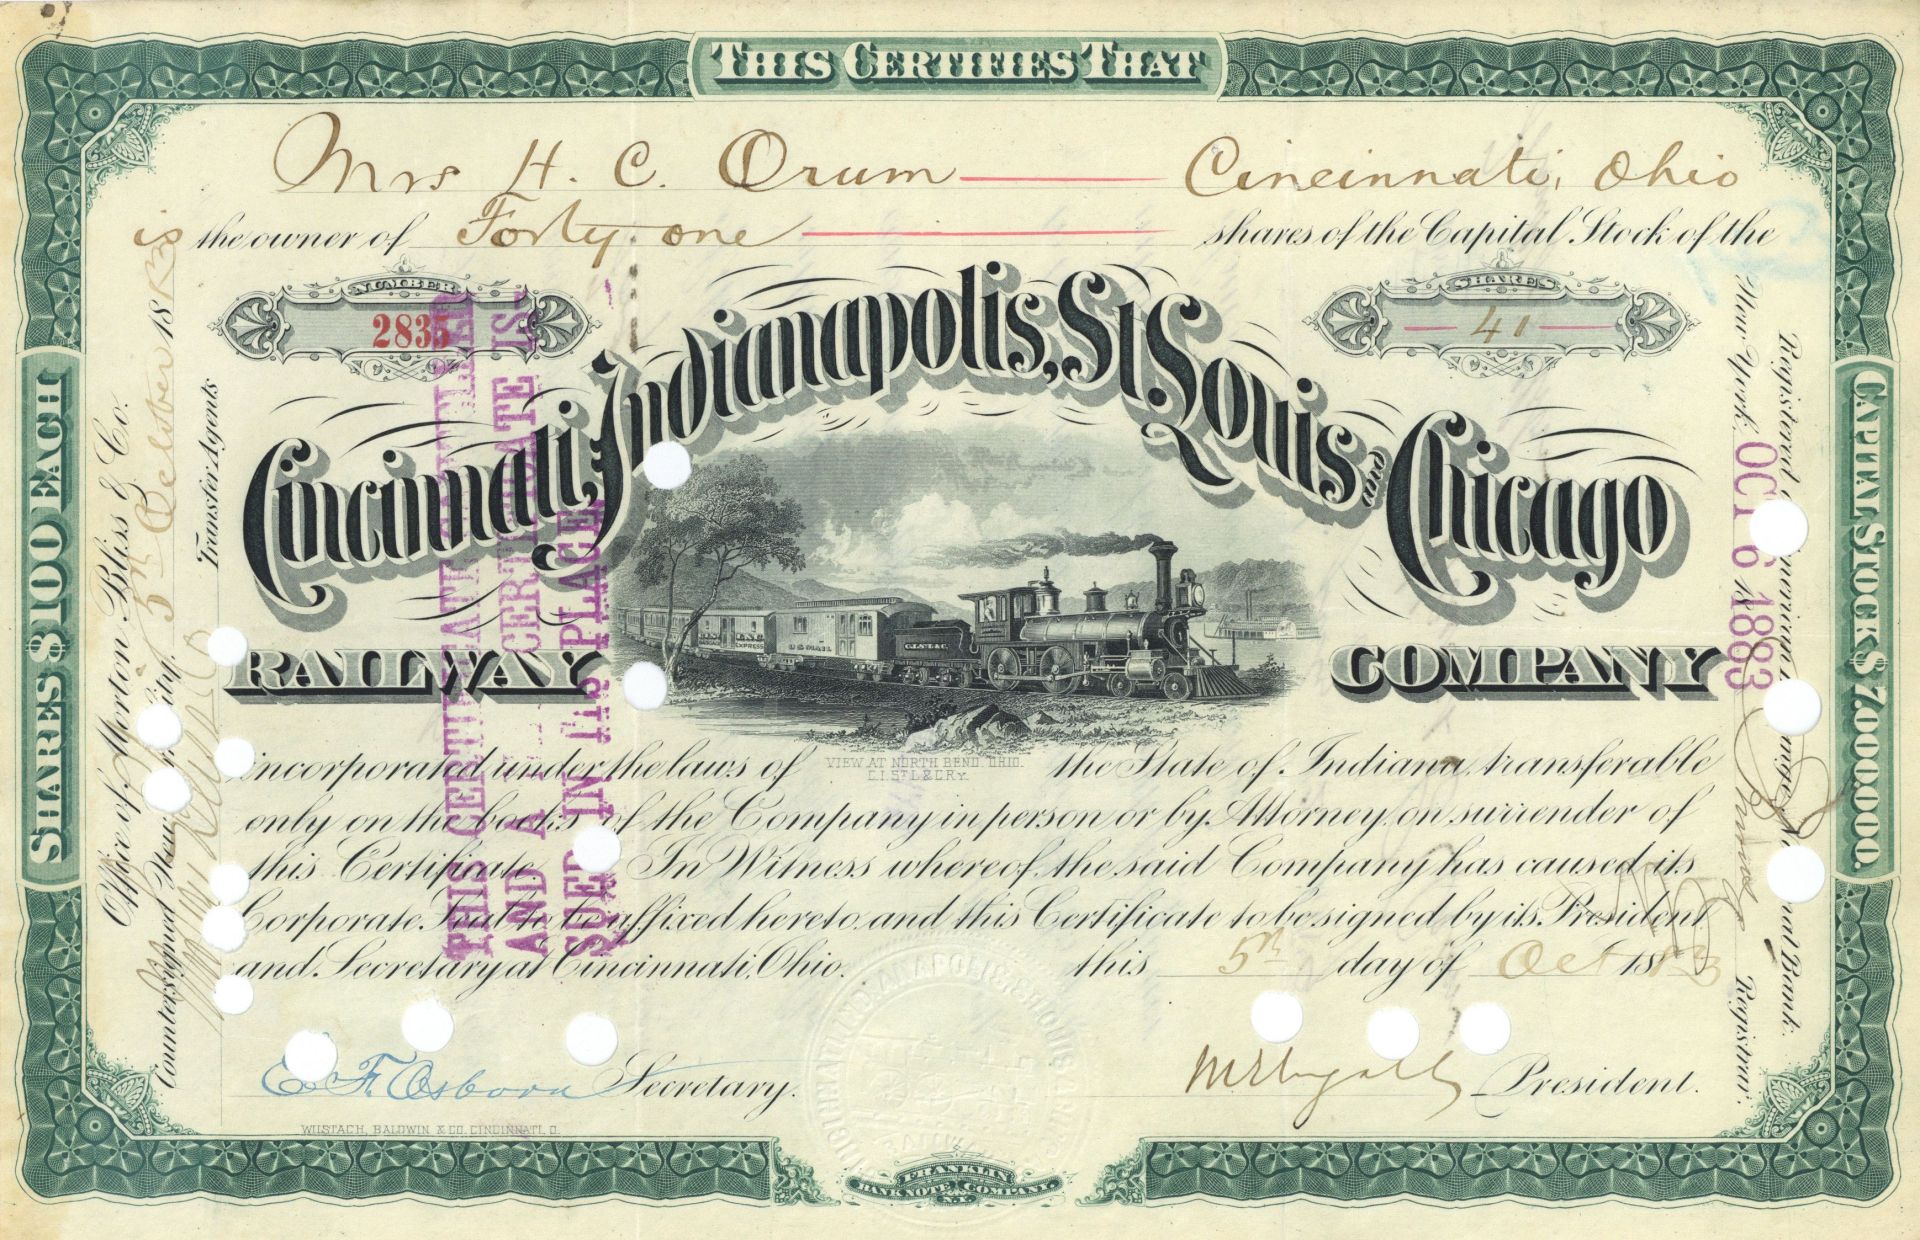 THIS CERTIFIES THAT
Mrs H. C. Orum Cincinnati, Ohio
is the owner of Forty one shares of the Capital Stock of the
NUMBER
2835
SHARES
41
Cincinnati, Indianapolis, St. Louis and Chicago
RAILWAY COMPANY
EXPRESS
U.S. MAIL
C.I.ST.L.&C.
VIEW AT NORTH BEND OHIO.
C.I.ST.L.&C.RY.
incorporated under the laws of the State of Indiana, transferable
only on the books of the Company in person or by Attorney on surrender of
this Certificate. In Witness whereof the said Company has caused its
Corporate Seal to be affixed hereto and this Certificate to be signed by its President
and Secretary at Cincinnati, Ohio. this 5th day of Oct 1883
E. F. Osborn Secretary.
President.
WILSTACH, BALDWIN & CO. CINCINNATI, O.
FRANKLIN
BANK NOTE COMPANY
N.Y.
SHARES $100 EACH
CAPITAL STOCK $7,000,000.00.
Office of Morton Bliss & Co.
Countersigned New City. 5th October 1883
Transfer Agents
THIS CERTIFICATE
AND A CERTIFICATE IS-
SUED IN ITS PLACE
New York, OCT 6 1883 1883
Registered
Registrar